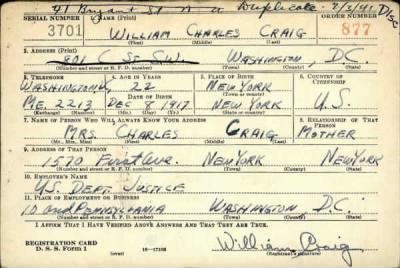 41 Bryant St N W Duplicate 7/3/41 Disc
SERIAL NUMBER 1. NAME (Print) ORDER NUMBER
3701 WILLIAM CHARLES CRAIG 877
(First) (Middle) (Last)
2. ADDRESS (Print)
801 C St. S.W. WASHINGTON, D.C.
(Number and street or R. F. D. number) (Town) (County) (State)
3. TELEPHONE 4. AGE IN YEARS 5. PLACE OF BIRTH 6. COUNTRY OF CITIZENSHIP
WASHINGTON 22 NEW YORK
DATE OF BIRTH (Town or county)
ME. 2213 DEC 8 1917 NEW YORK U.S.
(Exchange) (Number) (Mo.) (Day) (Yr.) (State or country)
7. NAME OF PERSON WHO WILL ALWAYS KNOW YOUR ADDRESS 8. RELATIONSHIP OF THAT PERSON
MRS. CHARLES CRAIG MOTHER
(Mr., Mrs., Miss) (First) (Middle) (Last)
9. ADDRESS OF THAT PERSON
1570 First Ave. NEW YORK NEW YORK
(Number and street or R. F. D. number) (Town) (County) (State)
10. EMPLOYER'S NAME
U.S. DEPT. JUSTICE
11. PLACE OF EMPLOYMENT OR BUSINESS
10 and PENNSYLVANIA WASHINGTON D.C.
(Number and street or R. F. D. number) (Town) (County) (State)
I AFFIRM THAT I HAVE VERIFIED ABOVE ANSWERS AND THAT THEY ARE TRUE.
REGISTRATION CARD
D. S. S. Form 1 (over) 16—17105 William Craig
(Registrant's signature)